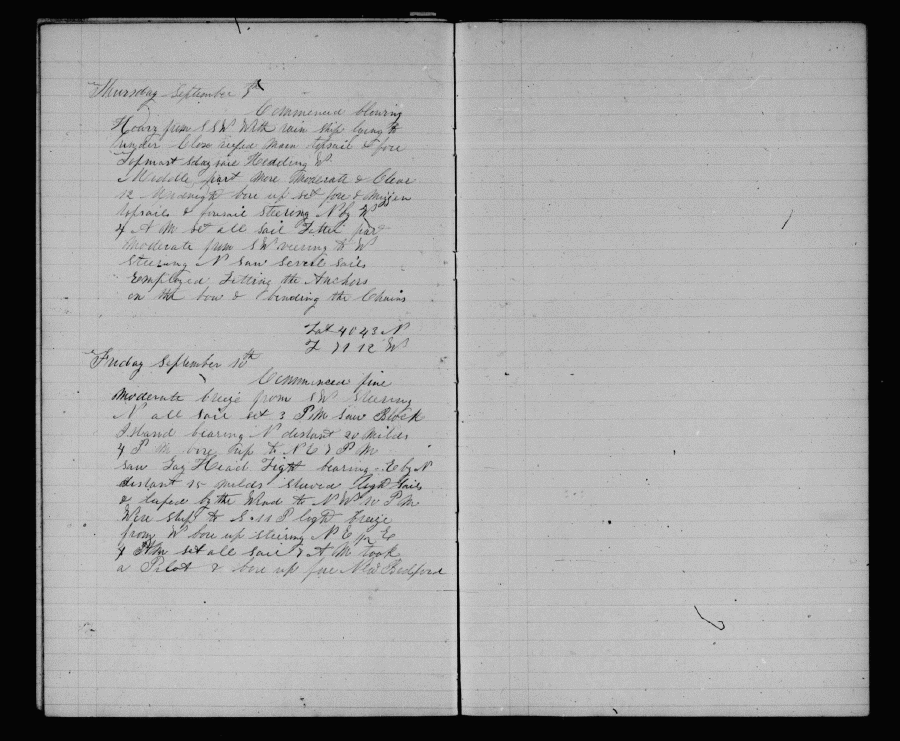 Thursday September 9th
Commenced blowing
Heavy from SSW With rain ship laying to
under Close reefed main topsail & fore
Topmast staysail Hedding W
Middle part more moderate & Clear
12 Midnight bore up set fore & mizen
topsails & foresail Steering N by W
4 A M set all sail Latter part
moderate from SW veering to W
Steering N saw several sails
Employed Fitting the Anchors
on the bow & bending the Chains
Lat 40 43 N
L 71 12 W
Friday September 10th
Commenced fine
moderate breeze from SW Steering
N all sail set 3 P M saw Block
Island bearing N distant 20 Miles
4 P M bore up to N E 7 P M
saw Gay Head Light bearing E by N
distant 15 miles Light Sails
& by the Wind to N W 10 P M
Wore ship to S 11 P light breeze
from W bore up steering N E
4 A M set all sail 7 A M took
a Pilot & bore up for New Bedford